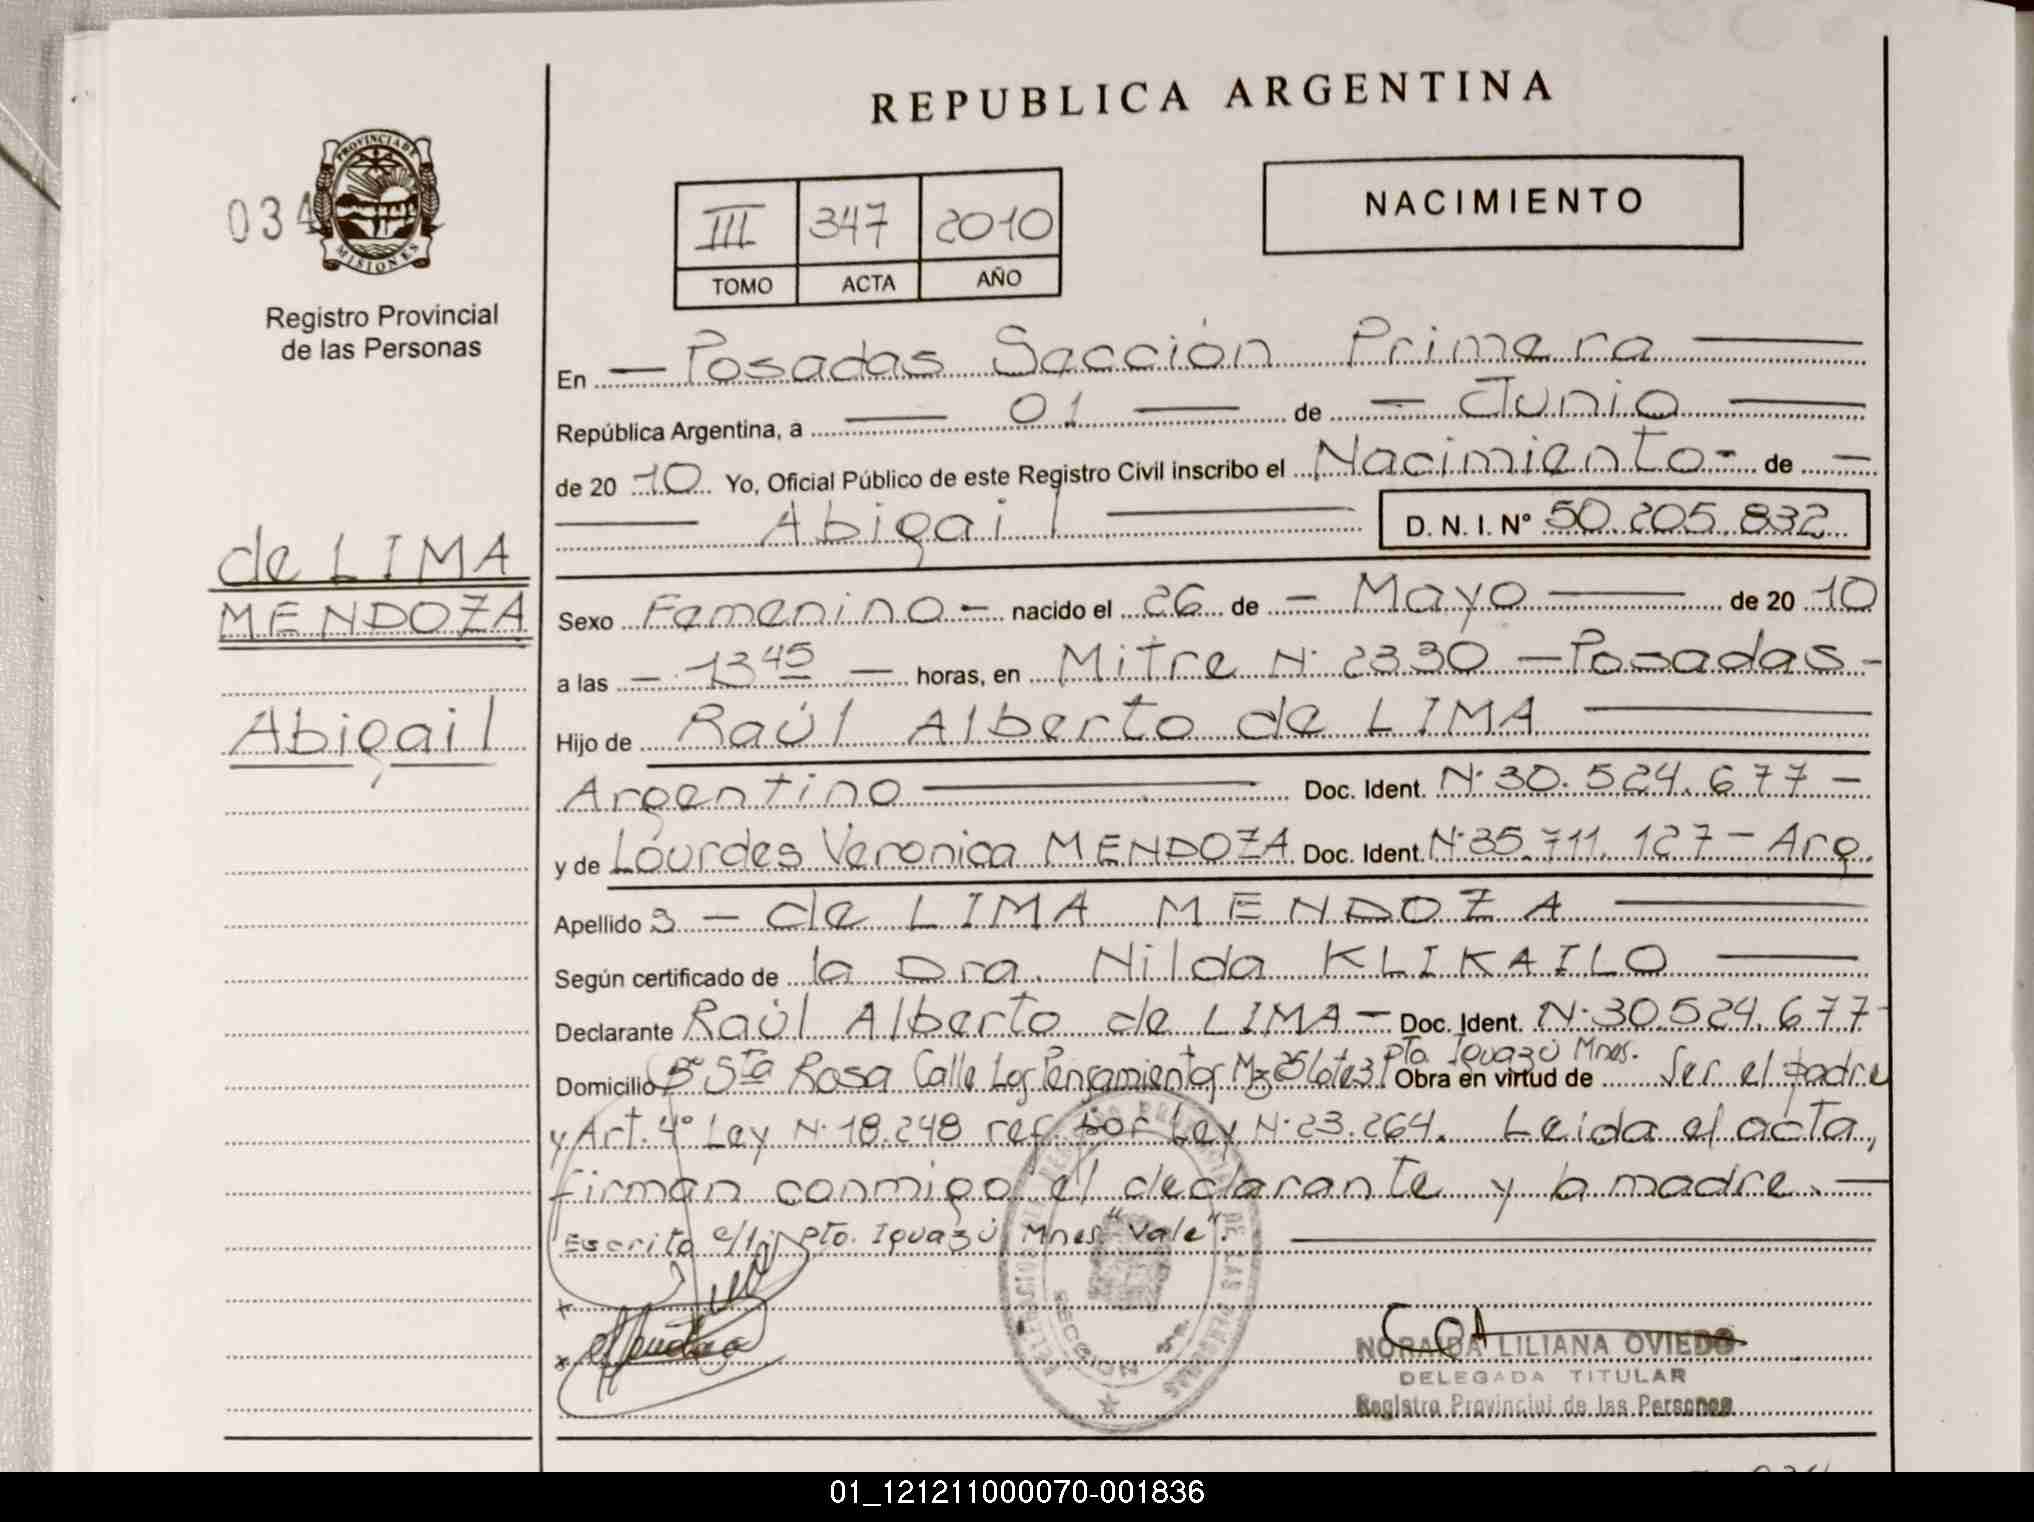 REPUBLICA ARGENTINA
NACIMIENTO
III 347 2010
TOMO ACTA AÑO
034
PROVINCIA DE
MISIONES
Registro Provincial
de las Personas
de LIMA
MENDOZA
Abigail
En — Posadas Sección Primera —
República Argentina, a — 01 — de — Junio —
de 20 10 Yo, Oficial Público de este Registro Civil inscribo el Nacimiento - de —
— Abigail — D. N. I. N° 50.205.832
Sexo Femenino - nacido el 26 de - Mayo — de 20 10
a las - 13 45 - horas, en Mitre N° 2330 - Posadas -
Hijo de Raúl Alberto de LIMA —
Argentino — Doc. Ident. N° 30.524.677 -
y de Lourdes Veronica MENDOZA Doc. Ident. N° 35.711.127 - Arg.
Apellido s - de LIMA MENDOZA —
Según certificado de la Dra. Nilda KLIKAILO —
Declarante Raúl Alberto de LIMA - Doc. Ident. N° 30.524.677 -
Pto Iguazú Mnes.
Domicilio B° Sta Rosa Calle Los Pensamientos Mz 25 lote 3 Obra en virtud de Ser el padre
y Art. 4° Ley N° 18.248 ref. por Ley N° 23.264. Leida el acta,
firman conmigo el declarante y la madre. —
Escrito e/l: Pto. Iguazú Mnes "Vale". —
SECCION 1ra.
NORAIDA LILIANA OVIEDO
DELEGADA TITULAR
Registro Provincial de las Personas
01_121211000070-001836